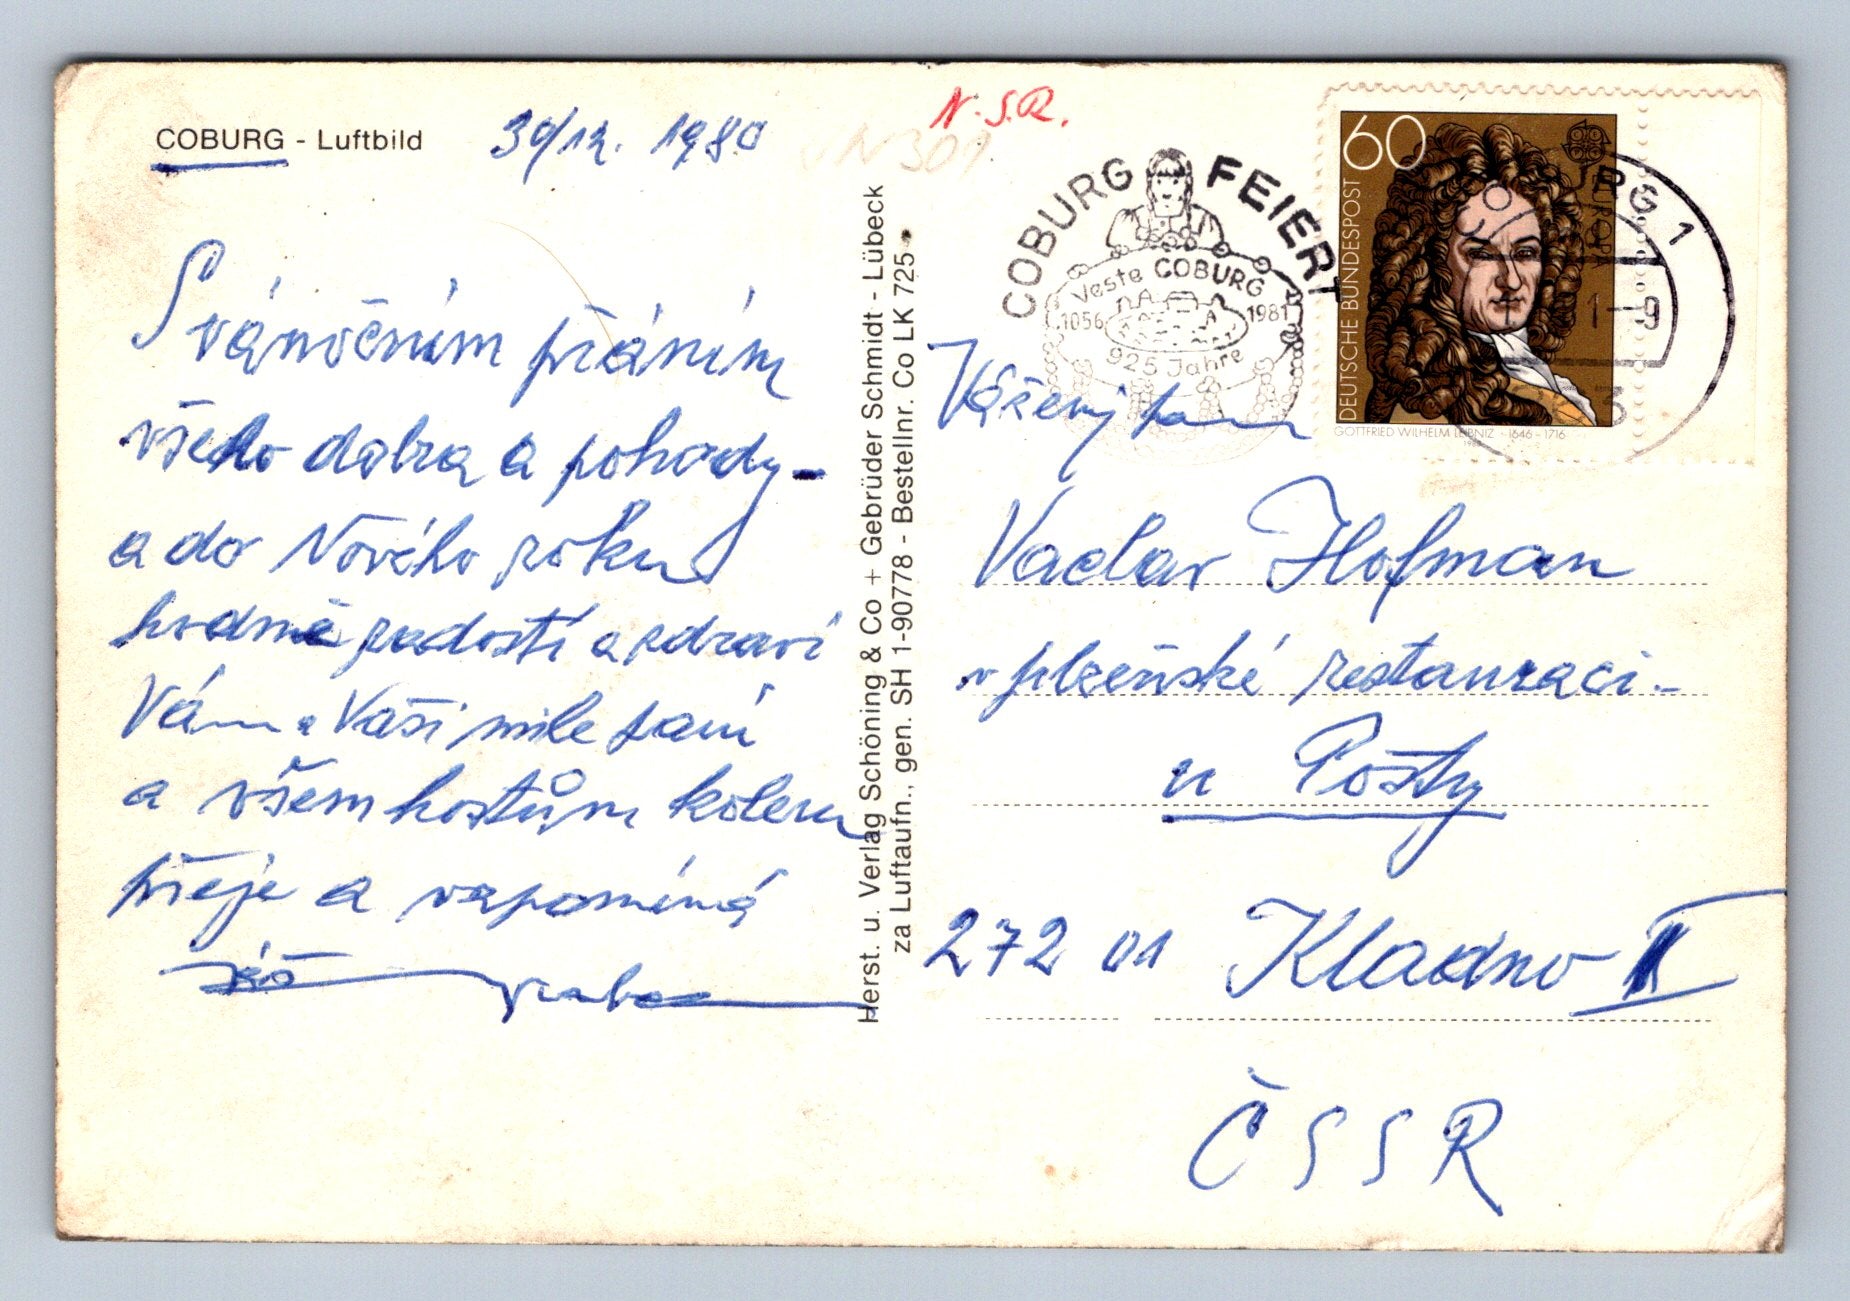 COBURG - Luftbild
30/12. 1980
S vánočním přáním
všeho dobra a pohody -
a do Nového roku
hodně radosti a zdraví
Vám a Vaší milé paní
a všem hostům kolem
přeje a vzpomíná
Herst. u. Verlag Schöning & Co + Gebrüder Schmidt - Lübeck
za Luftaufn., gen. SH 1-90778 - Bestellnr. Co LK 725
N.S.R.
N 301
COBURG FEIERT
Veste COBURG
1056 1981
925 Jahre
60
DEUTSCHE BUNDESPOST
EUROPA
GOTTFRIED WILHELM LEIBNIZ · 1646-1716
URG 1
1-9
Vážený pan
Vaclav Hofman
v plzeňské restauraci -
u Pošty
272 01 Kladno II
ČSSR